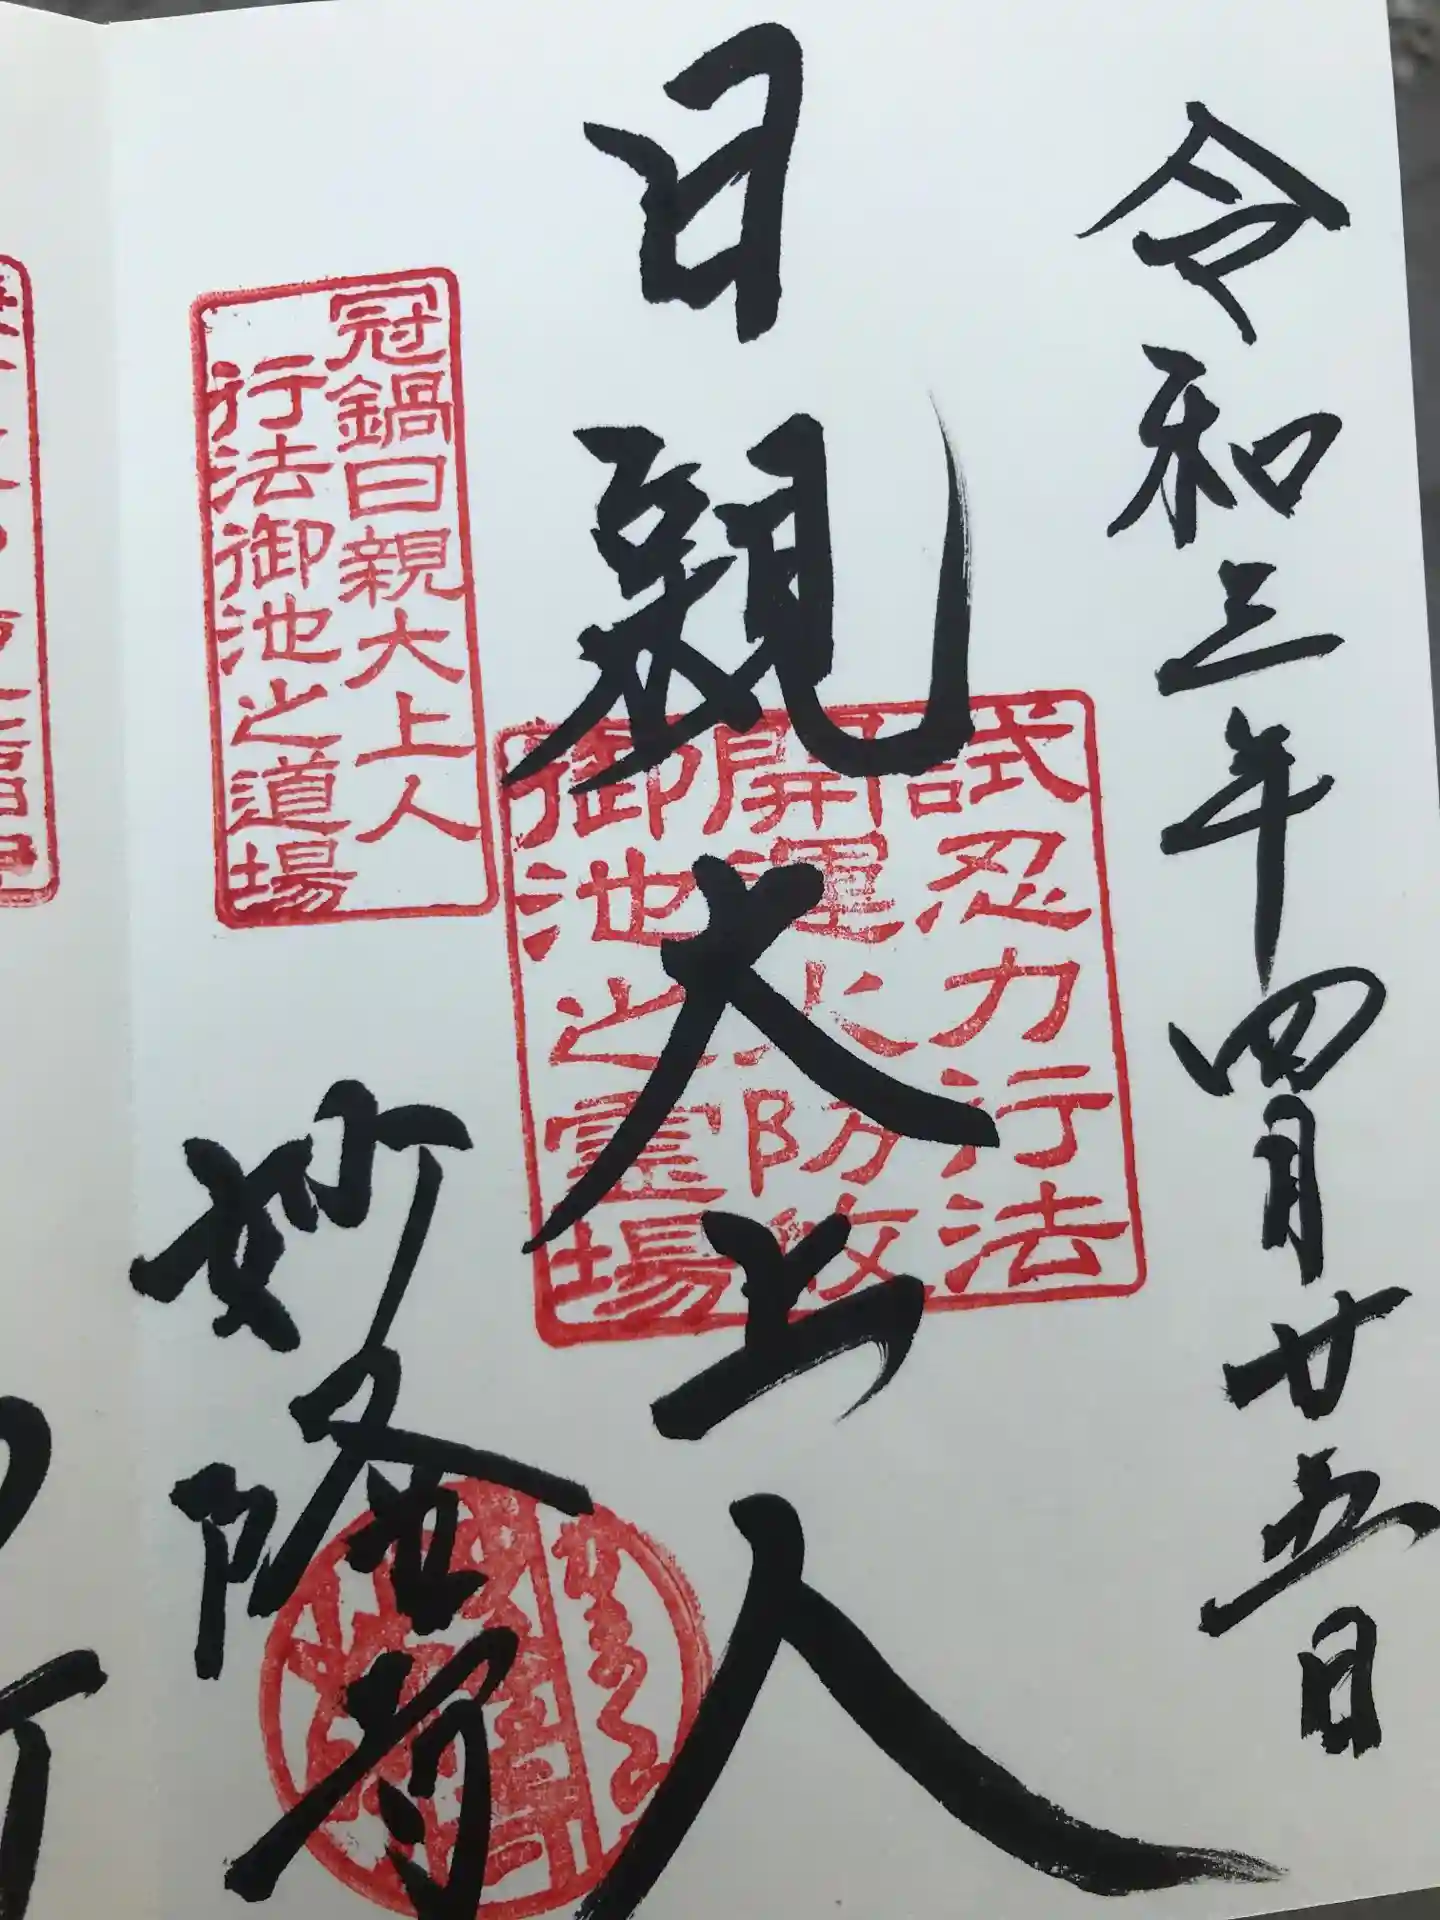 令和三年四月廿五日
日親大上人
試忍力行法
開運火防政
御池之霊場
冠鍋日親大上人
行法御池之道場
妙隆寺